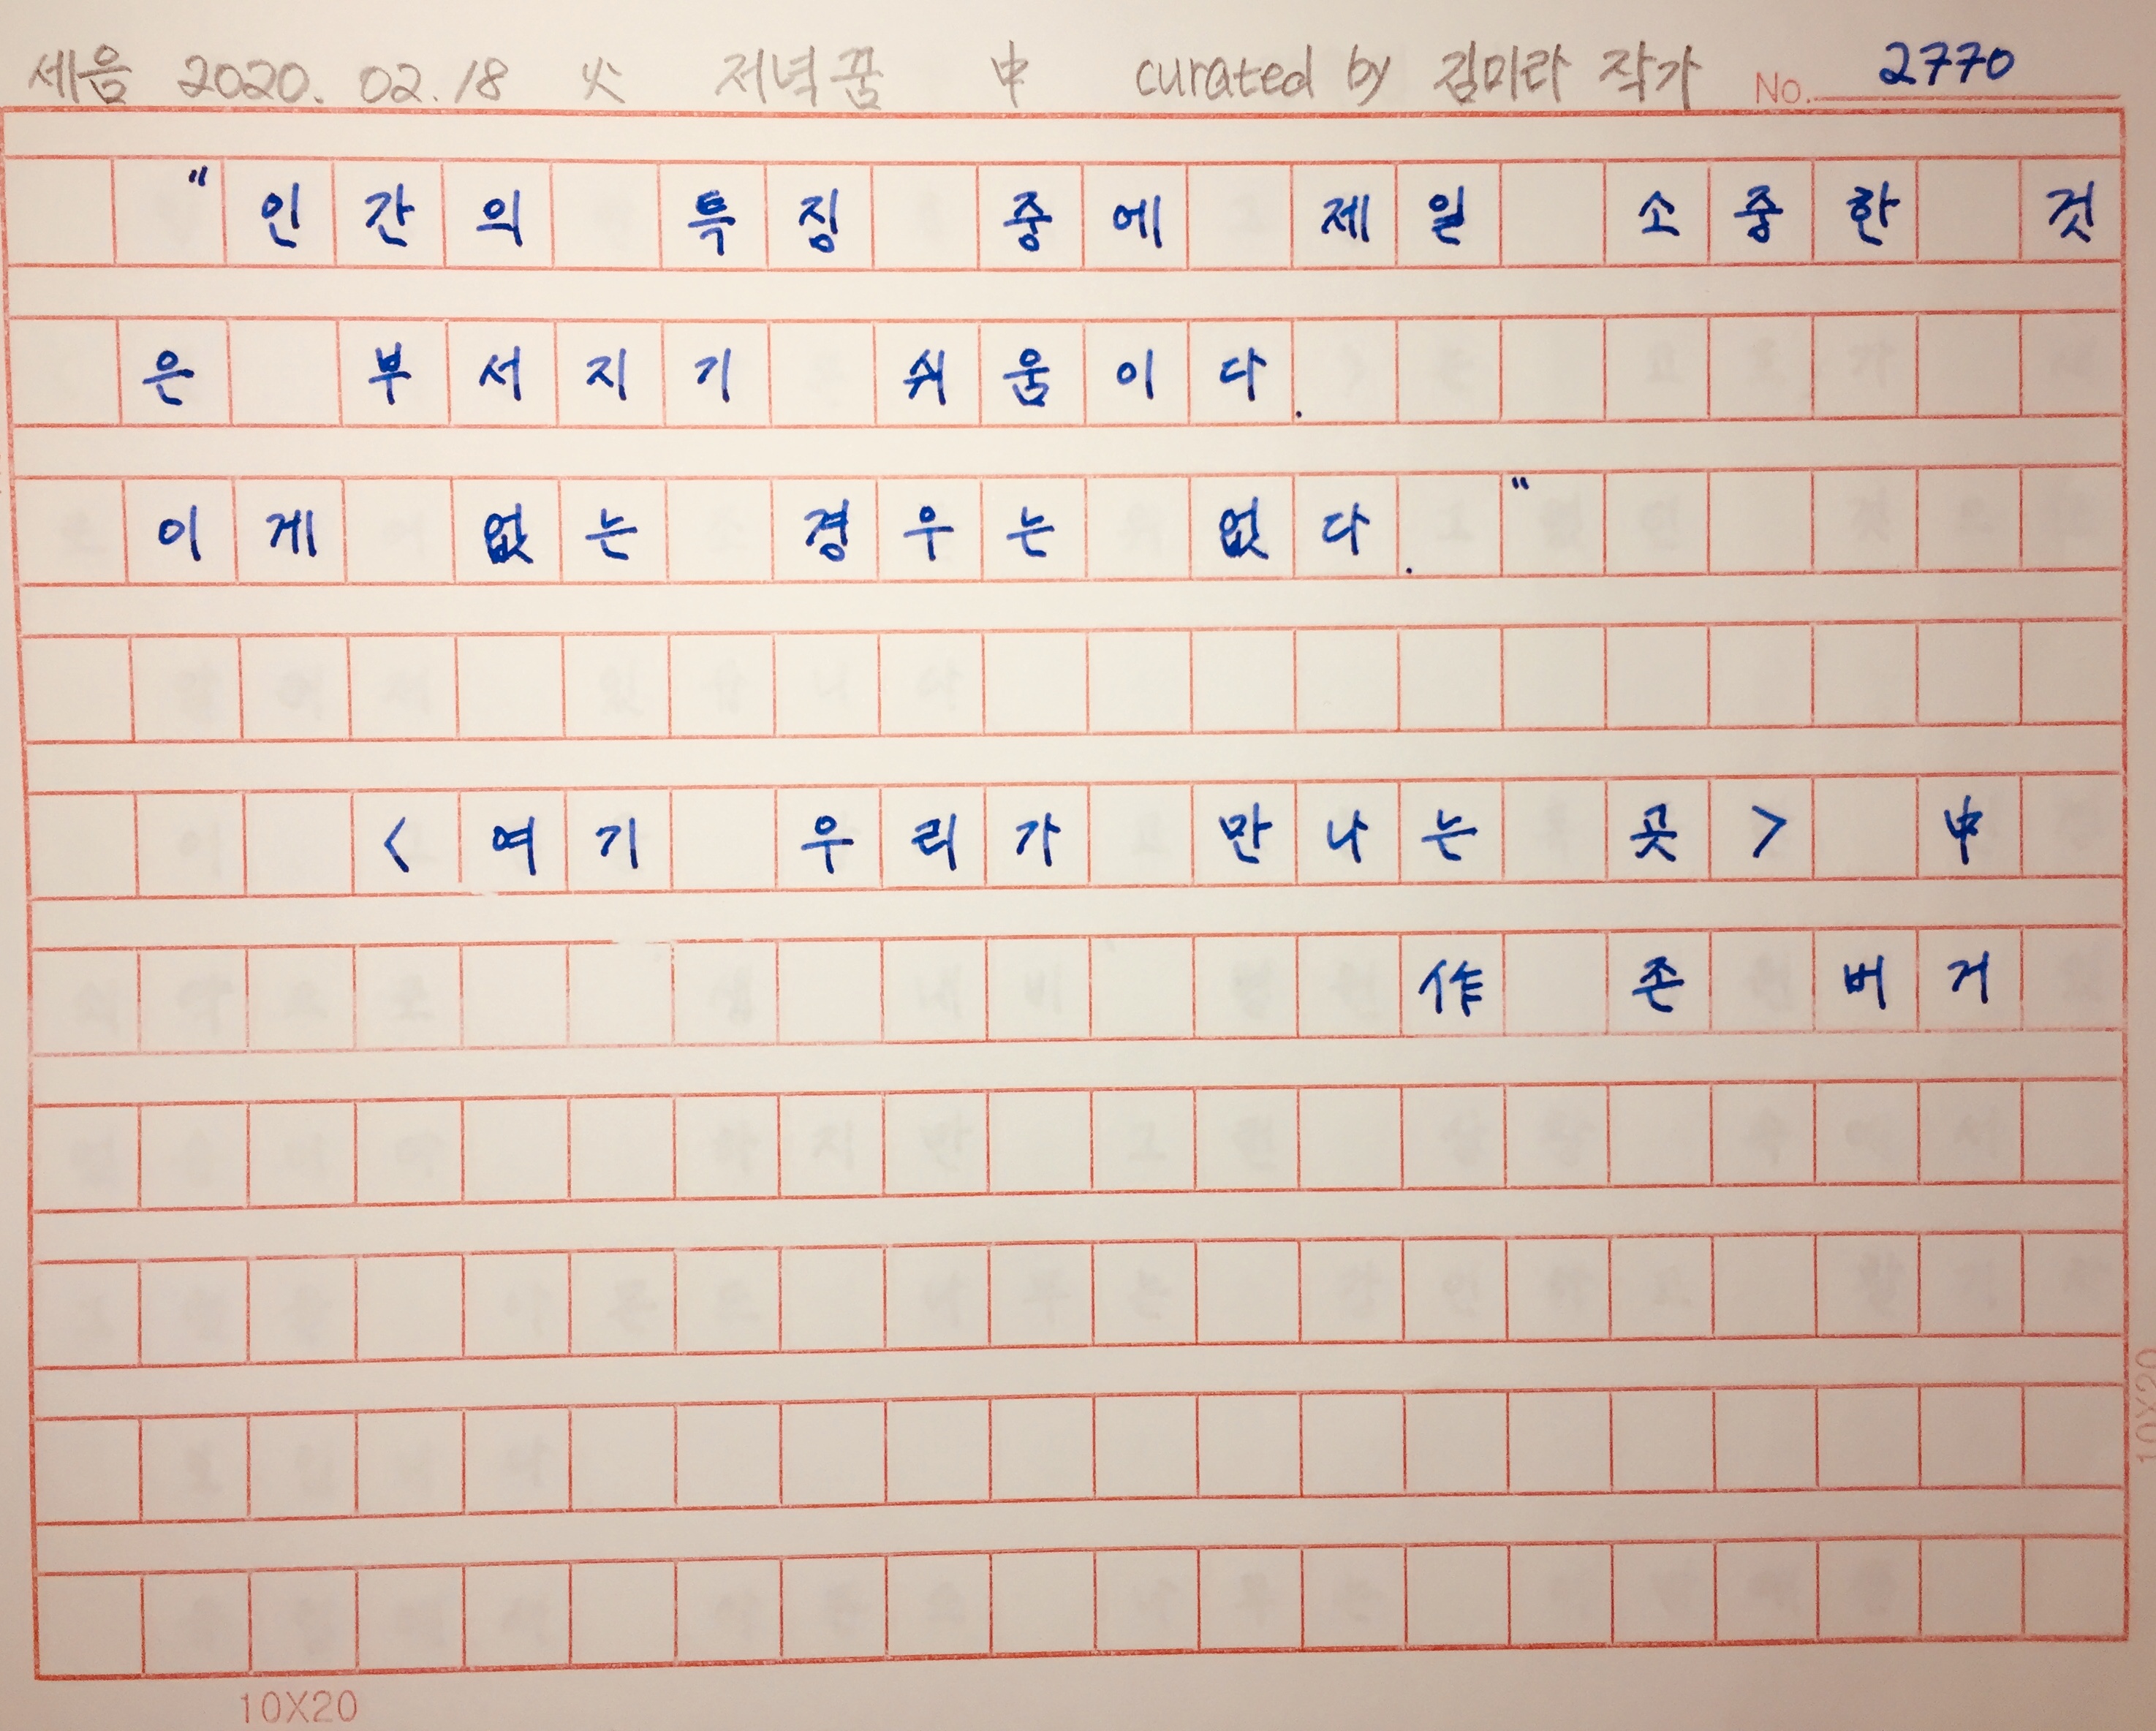 세음 2020. 02. 18 火 저녁꿈 中 curated by 김미라 작가 No. 2770
"인간의 특징 중에 제일 소중한 것
은 부서지기 쉬움이다.
이게 없는 경우는 없다."
<여기 우리가 만나는 곳> 中
作 존 버거
10X20
10X20